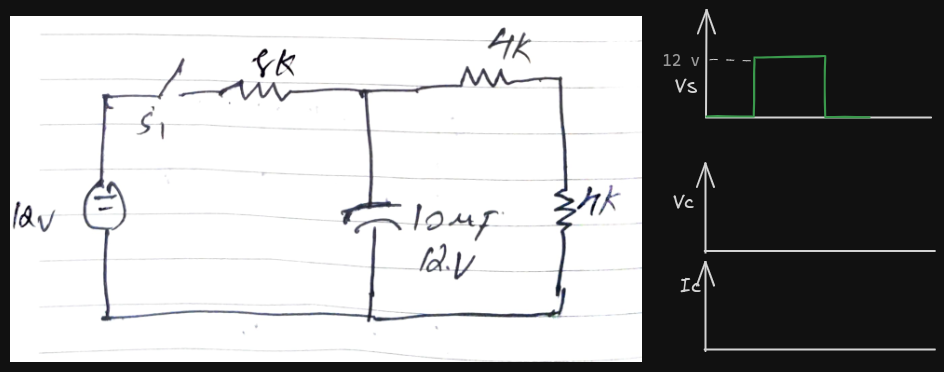 8K
4K
S1
12V
10μf
12.V
4K
12 v
Vs
Vc
Ic